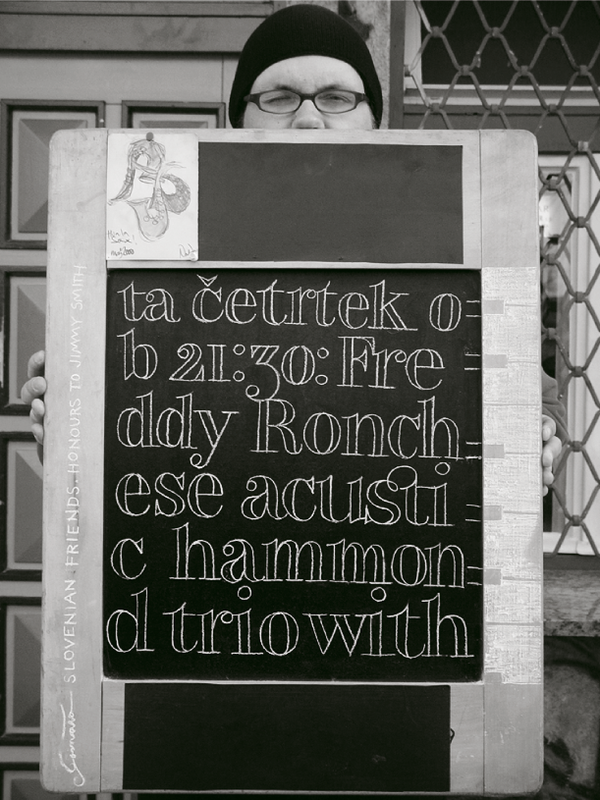 ta četrtek o=
b 21:30: Fre=
ddy Ronch=
ese acusti=
c hammon=
d trio with
SLOVENIAN.FRIENDS.HONOURS TO JIMMY SMITH